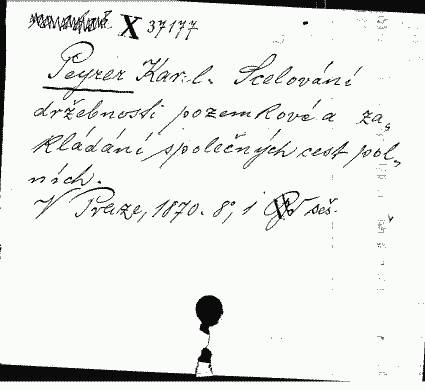 X 37177
Peyrer Karl. Scelování
držebnosti pozemkové a za„
kládání společných cest pol„
ních.
V Praze, 1870. 8°, 1 seš.